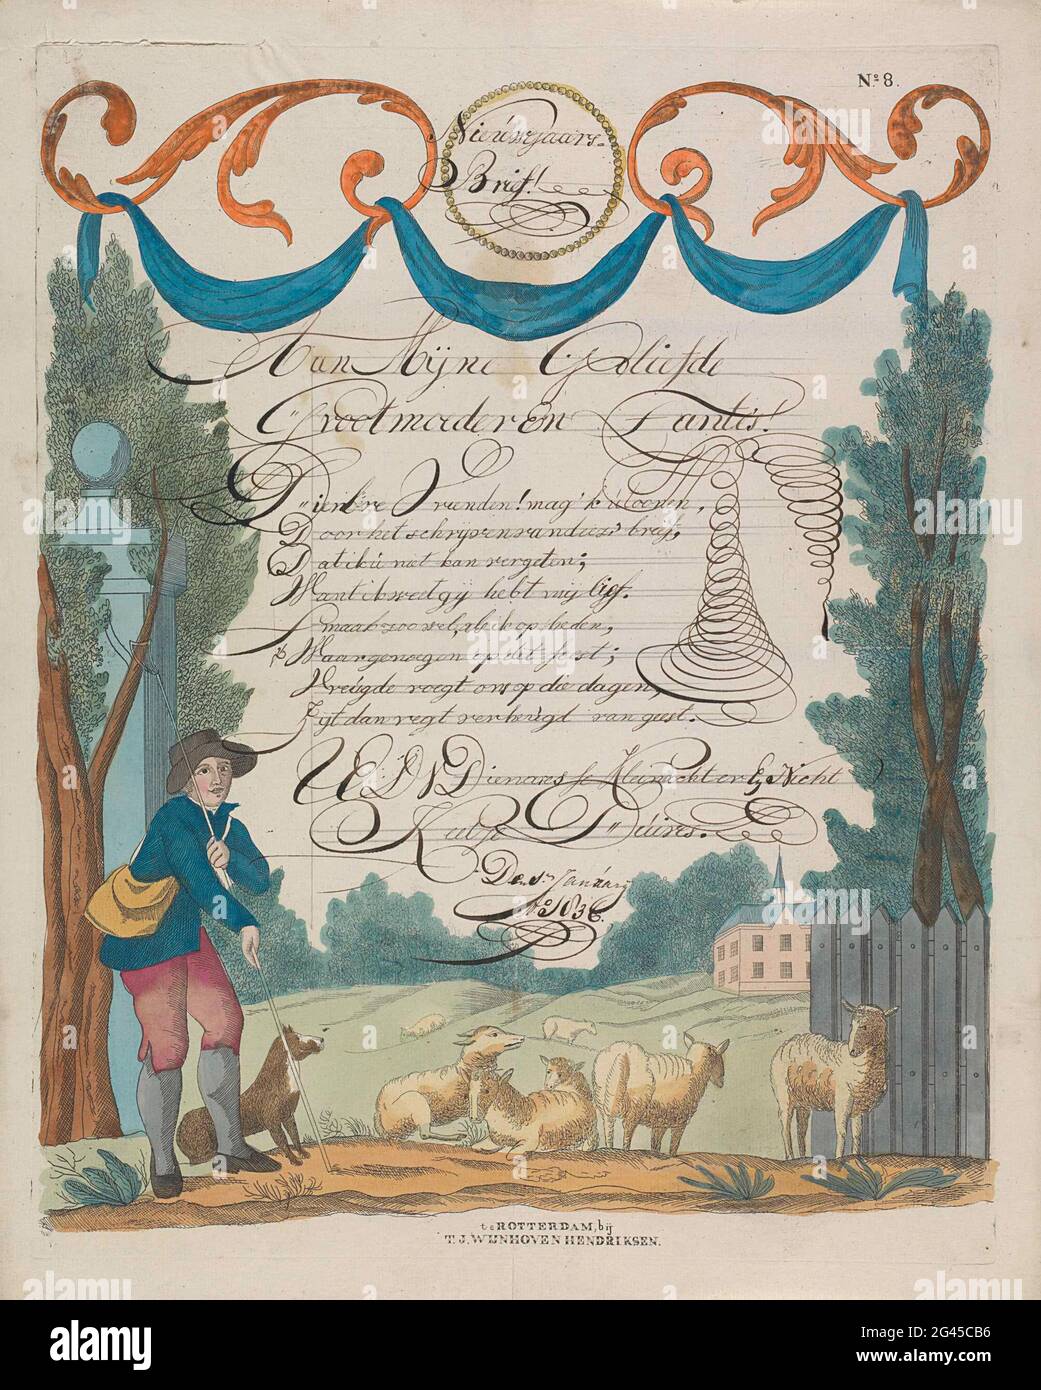 No. 8.
Nieuwejaars-
Brief!
Aan Mijne Geliefde
Grootmoeder En Tante's!
Dierb're Vrienden! mag 'k u
Door het schrijven van dees' brief,
Dat ik ú niet kan vergeten;
Want ik weet gij hebt mij lief.
smaak zoo wel, als ik op heden,
Waar genoegen op dit feest;
Vreúgde voegt ons op die dagen,
Zijt dan regt verheugd van geest.
UEDWDienares Kleindochter En Nicht
De 1 Janúarij
Ao 1836.
te ROTTERDAM, bij
T. J. WIJNHOVEN HENDRIKSEN.
alamy
Image ID: 2G45CB6
www.alamy.com